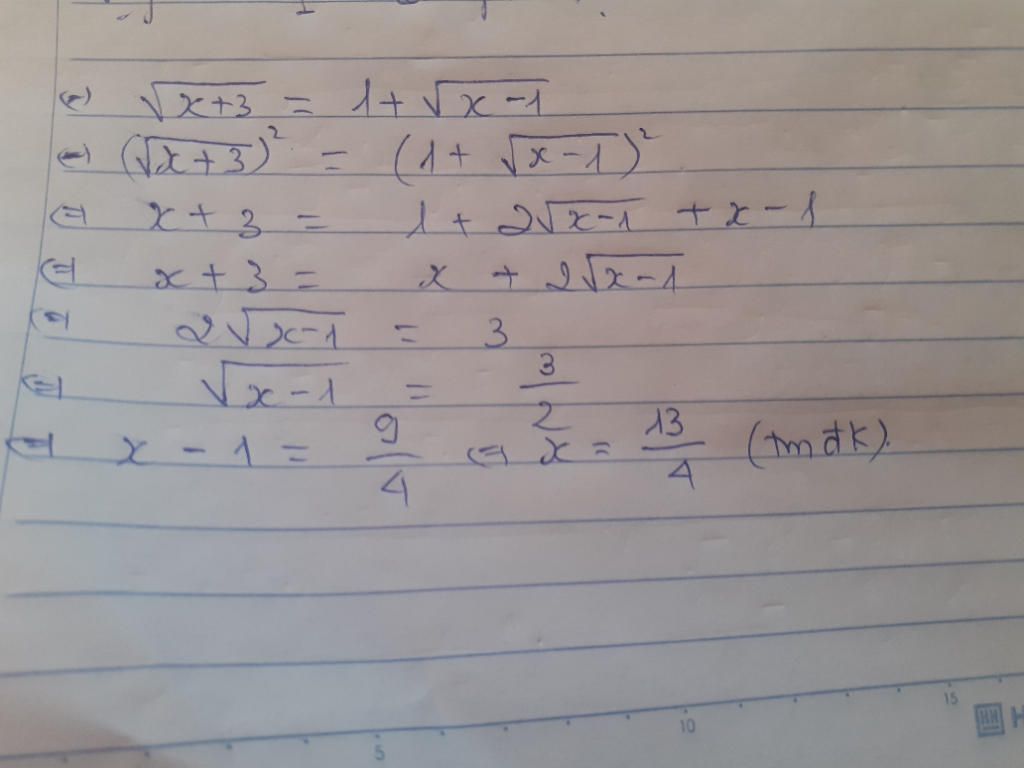 ⇔ √(x+3) = 1 + √(x-1)
⇔ (√(x+3))² = (1 + √(x-1))²
⇔ x + 3 = 1 + 2√(x-1) + x - 1
⇔ x + 3 = x + 2√(x-1)
⇔ 2√(x-1) = 3
⇔ √(x-1) = 3/2
⇔ x - 1 = 9/4 ⇔ x = 13/4 (tmđk).
5 10 15